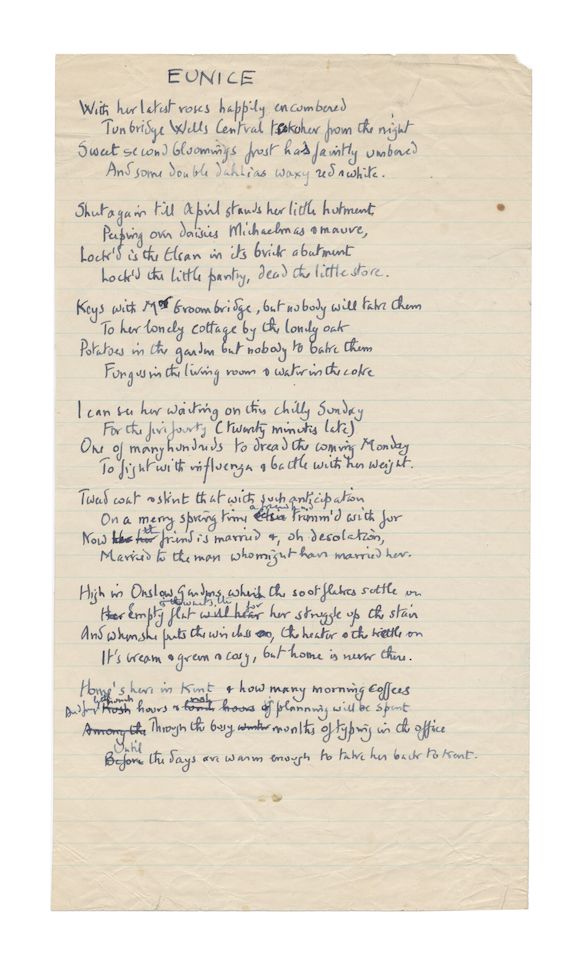 EUNICE
With her latest roses happily encumbered
Tunbridge Wells Central takes her from the night
Sweet second bloomings frost has faintly umbered
And some double dahlias waxy red & white.
Shut again till April stands her little hutment,
Peeping over daisies Michaelmas & mauve,
Lock'd is the Elsan in its brick abutment
Lock'd the little pantry, dead the little stove.
Keys with Mr Groombridge, but nobody will take them
To her lonely cottage by the lonely oak
Potatoes in the garden but nobody to bake them
Fungus in the living room & water in the coke
I can see her waiting on this chilly Sunday
For the five forty (twenty minutes late)
One of many hundreds to dread the coming Monday
To fight with influenza & battle with her weight.
Tweed coat & skirt that with such anticipation
a friend had
On a merry spring time trimm'd with fur
Now the friend is married &, oh desolation,
Married to the man who might have married her.
High in Onslow Gardens where the soot flakes settle on
An empty flat will hear her struggle up the stair
And when she puts the wireless on, the heater & the kettle on
It's cream & green & cosy, but home is never there.
Home's here in Kent & how many morning coffees
And hurried hours of planning will be spent
Among the Through the busy months of typing in the office
Until
Before the days are warm enough to take her back to Kent.